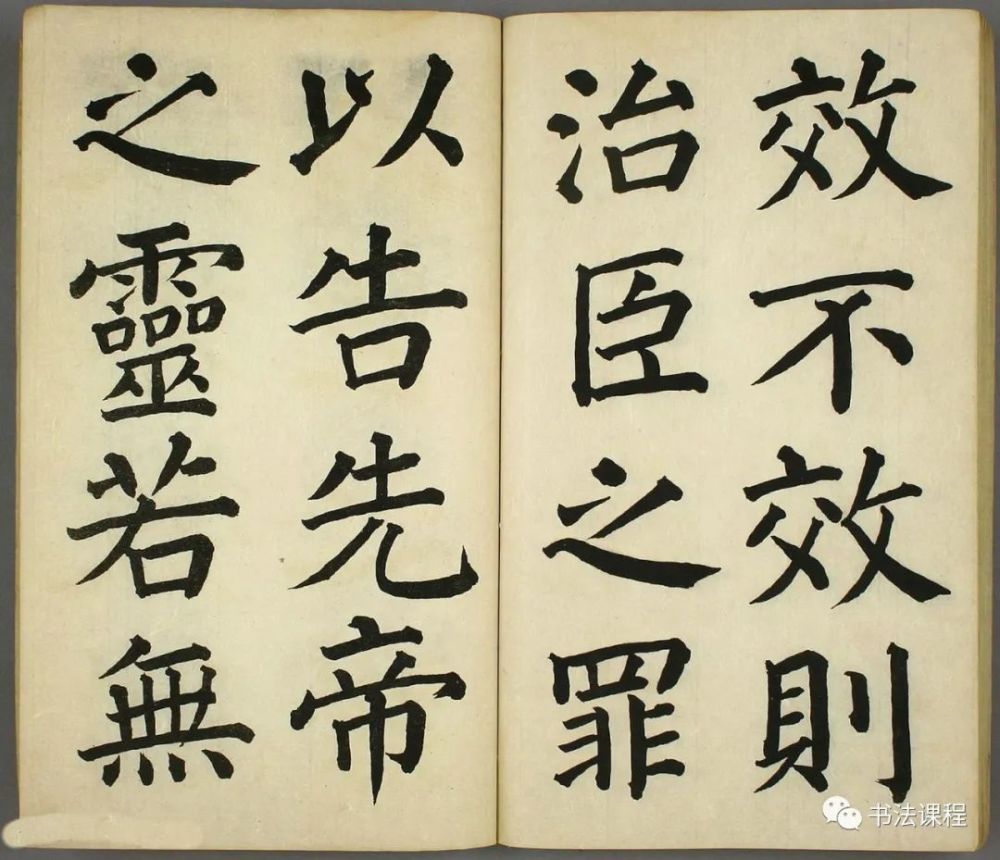 效不效則
治臣之罪
以告先帝
之靈若無
书法课程